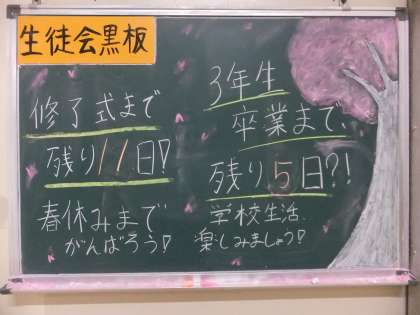 生徒会黒板
修了式まで
残り11日!
春休みまで
がんばろう!
3年生
卒業まで、
残り5日?!
学校生活
楽しみましょう!